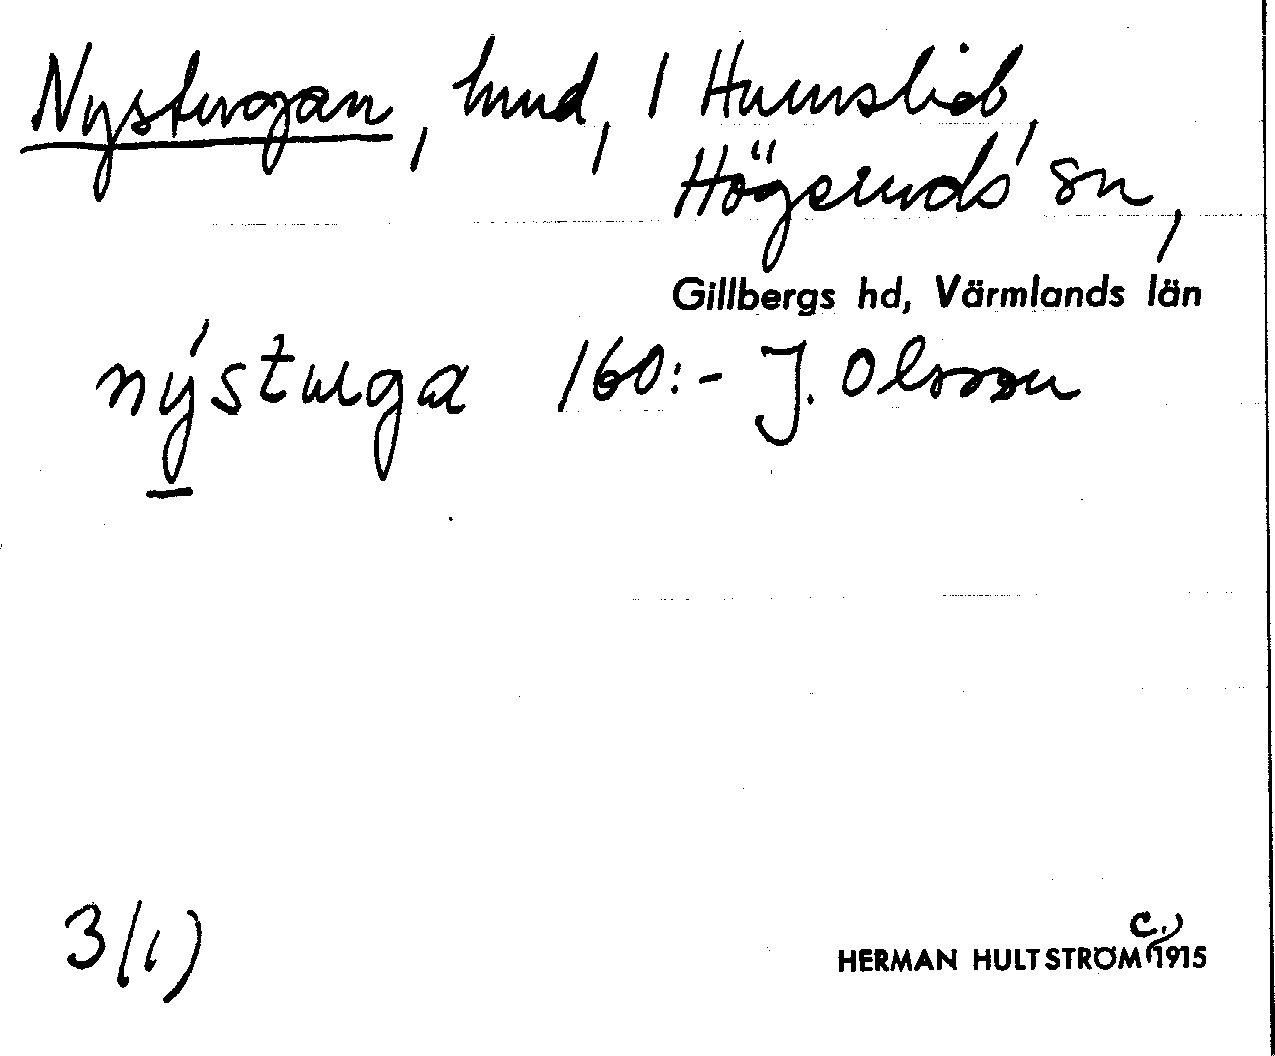 Nystugan, hmd, 1 Humslid,
Högeruds sn,
Gillbergs hd, Värmlands län
nýstuga 160:- J. Olsson
3/1)
c.)
HERMAN HULTSTRÖM 1915